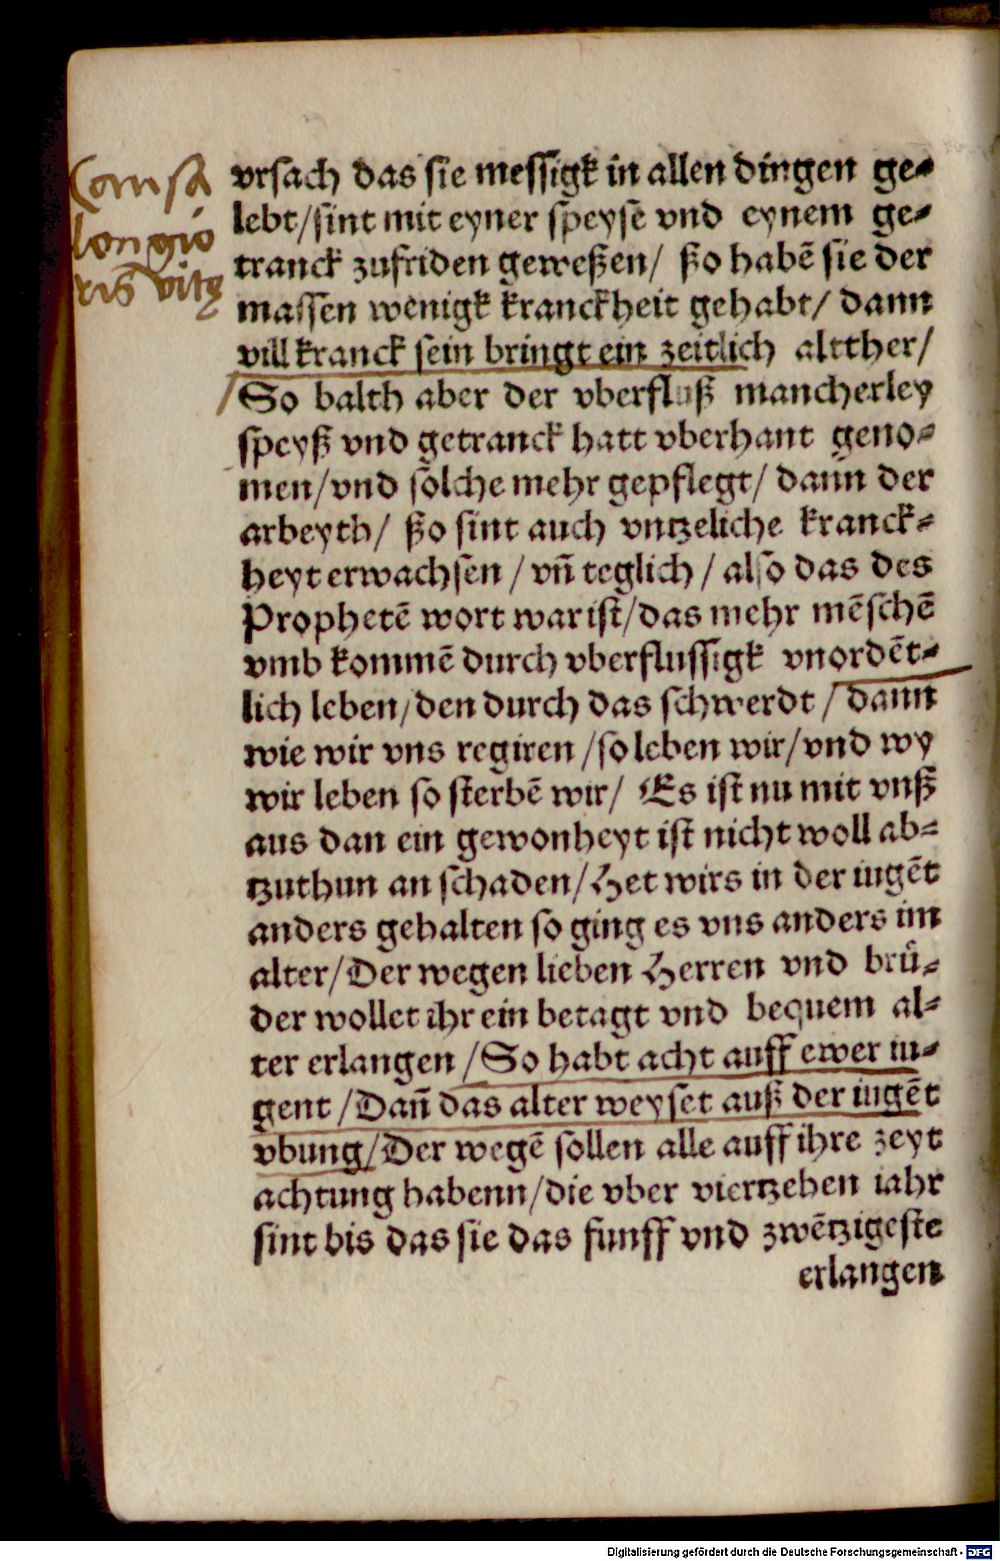 Causa
longio
ris vitę
vrsach das sie messigk in allen dingen ge⸗
lebt/sint mit eyner speyse vnd eynem ge⸗
tranck zufriden geweßen/ ßo habē sie der
massen wenigk kranckheit gehabt/ dann
vill kranck sein bringt ein zeitlich altther/
So balth aber der vberfluß mancherley
speyß vnd getranck hatt vberhant geno⸗
men/vnd solche mehr gepflegt/ dann der
arbeyth/ ßo sint auch vntzeliche kranck⸗
heyt erwachsen /vn̄ teglich / also das des
Prophetē wort war ist/das mehr mēschē
vmb kommē durch vberflussigk vnordēt⸗
lich leben/den durch das schwerdt / dann
wie wir vns regiren /so leben wir/vnd wy
wir leben so sterbē wir/ Es ist nu mit vnß
aus dan ein gewonheyt ist nicht woll ab⸗
tzuthun an schaden/Het wirs in der iugēt
anders gehalten so ging es vns anders im
alter/Der wegen lieben Herren vnd brů⸗
der wollet ihr ein betagt vnd bequem al⸗
ter erlangen /So habt acht auff ewer iu⸗
gent /Dan̄ das alter weyset auß der iugēt
vbung/Der wegē sollen alle auff ihre zeyt
achtung habenn/die vber viertzehen iahr
sint bis das sie das funff vnd zwētzigeste
erlangen
Digitalisierung gefördert durch die Deutsche Forschungsgemeinschaft - DFG